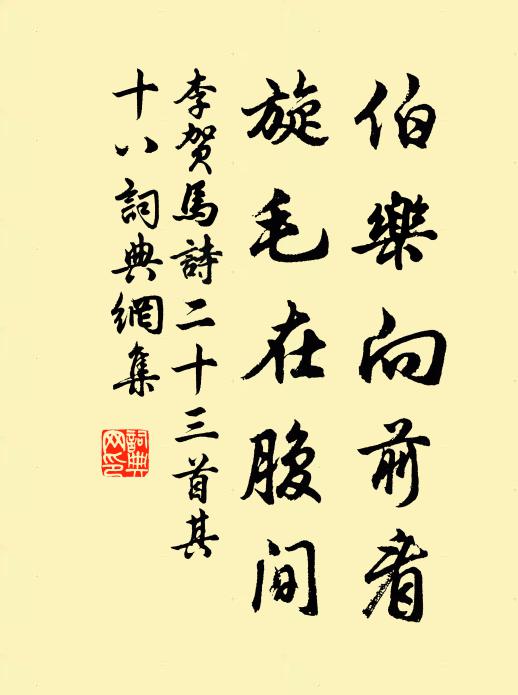 伯樂向前看
旋毛在腹間
李贺馬詩二十三首其
十八詞典網集
詞典
网印